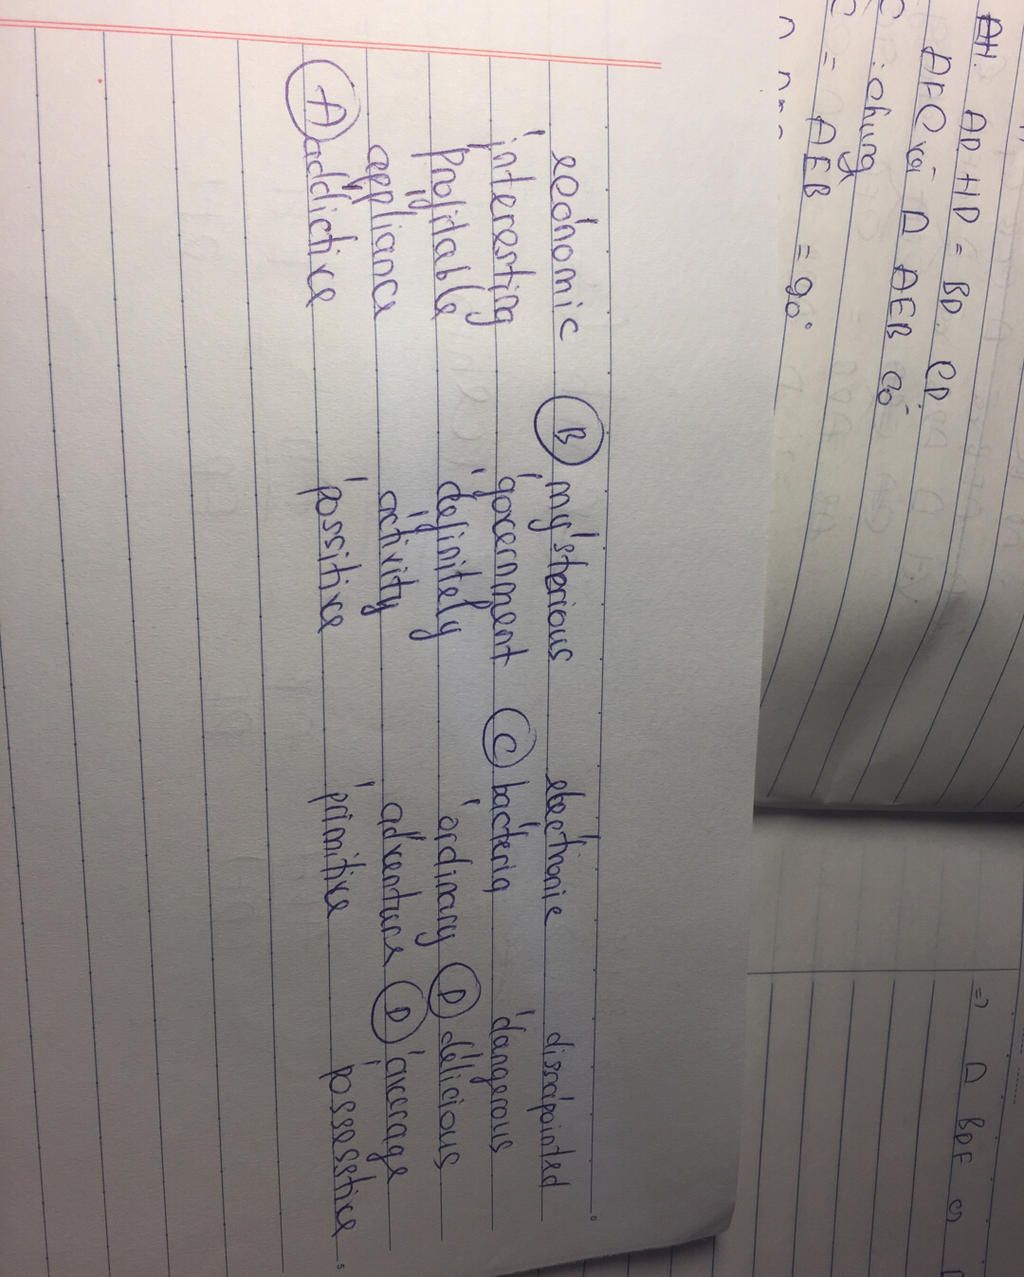 AH. AD. HD = BD. CD.
AFC và Δ AEB có
chung
= AEB = 90°
=> Δ BDF ∽
economic Ⓑ my'sterious electronic dissapointed
'interesting 'government Ⓒ bacteria 'dangerous
'profitable 'definitely 'ordinary Ⓓ delicious
appliance activity adventure Ⓓ 'average
Ⓐ addictive 'possitive 'primitive 'possesstive